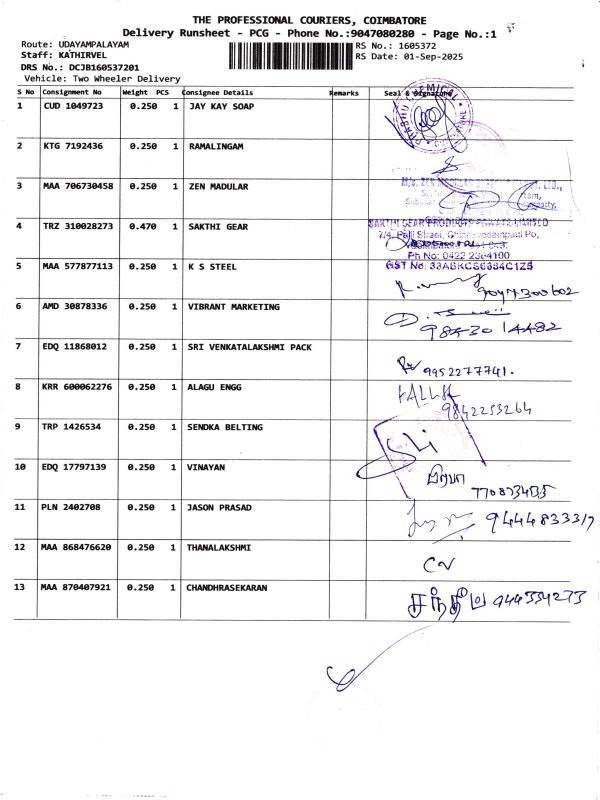 THE PROFESSIONAL COURIERS, COIMBATORE
Delivery Runsheet - PCG - Phone No.:9047080280 - Page No.:1
Route: UDAYAMPALAYAM
Staff: KATHIRVEL
DRS No.: DCJB160537201
Vehicle: Two Wheeler Delivery
RS No.: 1605372
RS Date: 01-Sep-2025
S No Consignment No Weight PCS Consignee Details Remarks Seal & Signature
1 CUD 1049723 0.250 1 JAY KAY SOAP
2 KTG 7192436 0.250 1 RAMALINGAM
3 MAA 706730458 0.250 1 ZEN MADULAR
4 TRZ 310028273 0.470 1 SAKTHI GEAR
SAKTHI GEAR PRODUCTS PRIVATE LIMITED
Ph No: 0422 2364100
5 MAA 577877113 0.250 1 K S STEEL
9047300602
6 AMD 30878336 0.250 1 VIBRANT MARKETING
9843014482
7 EDQ 11868012 0.250 1 SRI VENKATALAKSHMI PACK
9952277741.
8 KRR 600062276 0.250 1 ALAGU ENGG
9842253264
9 TRP 1426534 0.250 1 SENDKA BELTING
10 EDQ 17797139 0.250 1 VINAYAN
11 PLN 2402708 0.250 1 JASON PRASAD
9444833317
12 MAA 868476620 0.250 1 THANALAKSHMI
13 MAA 870407921 0.250 1 CHANDHRASEKARAN